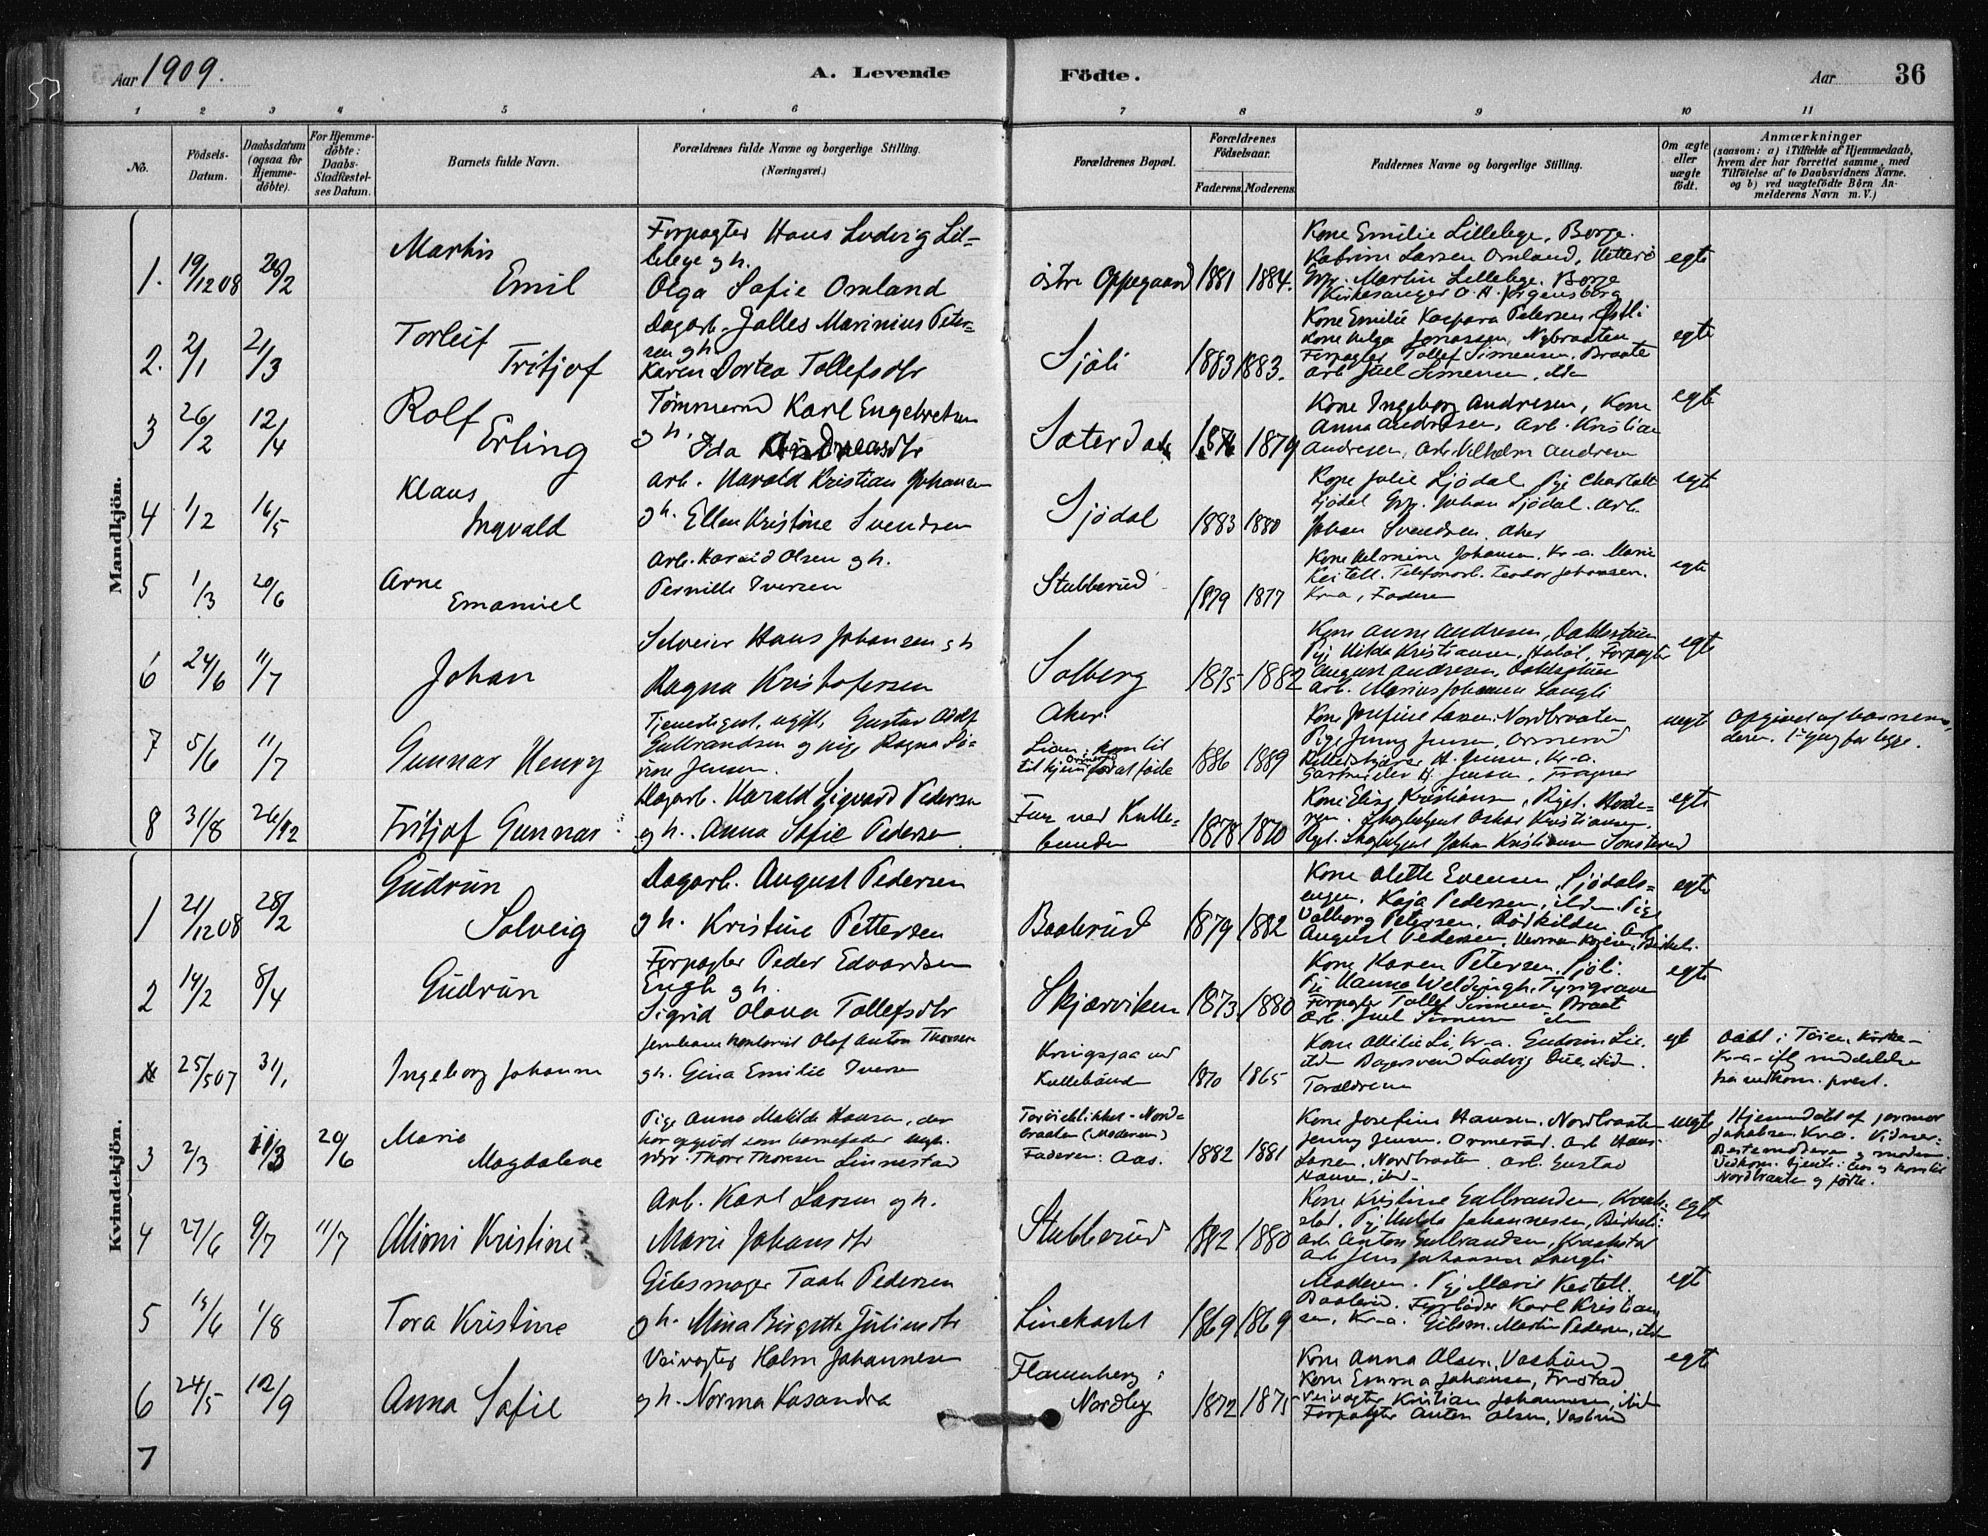 Aar 1909.
A. Levende
Födte.
Aar
36
1 2 3 4 5 6 7 8 9 10 11
No.
Födsels-
Datum.
Daabsdatum
(ogsaa for
Hjemme-
döbte).
For Hjemme-
döbte:
Daabs-
Stadfæstel-
ses Datum.
Barnets fulde Navn.
Forældrenes fulde Navne og borgerlige Stilling.
(Næringsvei.)
Forældrenes Bopæl.
Forældrenes
Födselsaar.
Faderens. Moderens.
Faddernes Navne og borgerlige Stilling.
Om ægte
eller
uægte
födt.
Anmærkninger
(saasom: a) i Tilfælde af Hjemmedaab,
hvem der har forrettet samme, med
Tilföielse af to Daabsvidners Navne.
og b) ved uægtefödte Börn An-
melderens Navn m. V.)
Mandkjön.
1. 19/12 08 28/2
Martin
Emil
Forpagter Hans Ludvig Lil-
lelege g h.
Olga Sofie Omland
östre Oppegaard 1881 1884.
Kone Emilie Lillelege, Borge.
Katrine Larsen Omland,
Martin Lillelege. Borge
Kirkesanger O. H. Jörgensborg
egte
2. 2/1 21/3
Torleif
Fritjof
Dagarb. Jalles Marinius Peter-
sen g h
Karen Dortea Tollefsdtr
Sjöli
1883 1883.
Kone Emilie Kaspara Petersen
Kone Helga Jonassen, Nybraaten
Forpagter Tollef Simensen. Braate
Arb Juel Simensen
egte
3 26/2 12/4
Rolf
Erling
Tömmermd Karl Engebretsen
g h. Ida Andreasdtr
Sæterdal
1876 1879
Kone Ingeborg Andresen, Kone
Anna Andresen, Arb. Kristian
Andresen, Arb. Vilhelm Andresen
egte
4 1/2 16/5
Klaus
Ingvald
Arb. Harald Kristian Johansen
g h. Ellen Kristine Svendsen
Sjödal
1883 1880
Kone Julie Sjödal Pige Charlotte
Sjödal Grp. Johan Sjödal. Arb.
Johan Svendsen. Aker
egt
5 1/3 20/6
Arne
Emanuel
Arb. Harald Olsen g h.
Pernille Iversen
Stubberud
1879 1877
Kone Johansen. Kr-a. Marie
Telefonarb. Teodor Johansen.
Kr-a, Faderen
egte
6 24/6 11/7
Johan
Selveier Hans Johansen g h
Ragna Kristofersen
Solberg
1875 1882
Kone Anne Andresen,
Pige Hilda Kristiansen, Forpagter
August Andresen,
Arb. Marius Johansen Langli
egte
7 5/6 11/7
Gunnar Henry
Tjenestegut, ugift, Gustav Adolf
Gulbrandsen og pige Ragna Jo-
sine Jensen.
Aker:
Lian: kom til
Ormerud
til hjem for at föde
1886 1889
Kone Josefine Larsen. Nordbraaten
Pige Jenny Jensen, Ormerud
H. Jensen, Kr-a.
H. Jensen, Frogner
uegt
Opgivet af barnemo-
deren.
8 31/8 26/12
Fritjof Gunnar
Dagarb. Harald Sigvard Pedersen
g h. Anna Sofie Pedersen
ved Kulle-
bunden
1878 1870
Kone Elise Kristiansen, Pige.
Oskar Kristiansen.
Johan Kristiansen Sonsterud
egte
Kvindekjön.
1 21/12 08 28/2
Gudrun
Solveig
Dagarb. August Pedersen
g h. Kristine Pettersen
Baalerud
1879 1882
Kone Olette Evensen, Sjödals-
engen. Kaja Pedersen, ildm. Pige
Valborg Petersen, Rödkilden, Arb.
August Pedersen, Herman
egte
2 14/2 8/4
Gudrun
Forpagter Peder Edvardsen
Engh g h.
Sigrid Olava Tollefsdtr
Skjærviken
1873 1880
Kone Karen Petersen. Sjöli.
Pige Hanna Weldingh. Tyrigrave
Forpagter Tollef Simensen, Braat
Arb. Juel Simensen
egte
25/5 07 31/1
Ingeborg Johanne
Jernbane kontorist Olaf Anton Thoresen
g h. Gina Emilie Iversen
Kongsjaa ved
Kullebunden
1870 1865
Kone Ottilie Li, Kr-a. Gudrun Lie.
ildm Bagersvend Ludvig Lie, ildm.
Forældrene
egt
Döbt i Töien Kirke-
Kr-a ifl meddelelse
fra vedkom. prest.
3 2/3 11/3 20/6
Marie
Magdalene
Pige Anna Matilde Hansen, der
har opgivet som barnefader ungk.
Thore Thoresen Linnestad
Nord-
braaten (Moderen)
Faderen: Aas.
1882 1881
Kone Josefine Hansen. Nordbraaten
Jenny Jensen. Ormerud. Arb Hans
Larsen, Nordbraaten. Arb. Gustav
Hansen, ibid-
uegte
Hjemmedöbt af jormor
Jakobsen Kr-a. Vidner:
Bestemoderen og moderen.
Nordbraaten og födte.
4 27/6 9/7 11/7
Mimi Kristine
Arb. Karl Larsen g h.
Marie Johansdtr
Stubberud
1882 1880
Kone Kristine Gulbrandsen, Kraake-
stad, Pige Hulda Johannesen,
Arb Anton Gulbrandsen, Kraakstad
Arb Jens Johansen Langli
egte
5 15/6 1/8
Tora Kristine
Gibsmager Taale Pedersen
g h. Mina Birgitte Juliusdtr
Linekastet
1869 1869
Moderen. Pige Marie
Baalerud. Fyrböder Karl Kristian-
sen, Kr-a. Gibsm. Martin Pedersen, ibid
egt
6 24/5 12/9
Anna Sofie
Veivogter Holm Johannesen
g h. Norma Kasandra
Flaumberg i
Nordby
1872 1875
Kone Anna Olsen, Vasbund
Kone Emma Johansen, Frustad
Veivogter Kristian Johannesen, ibid
Forpagter Anton Olsen, Vasbund
egt
7